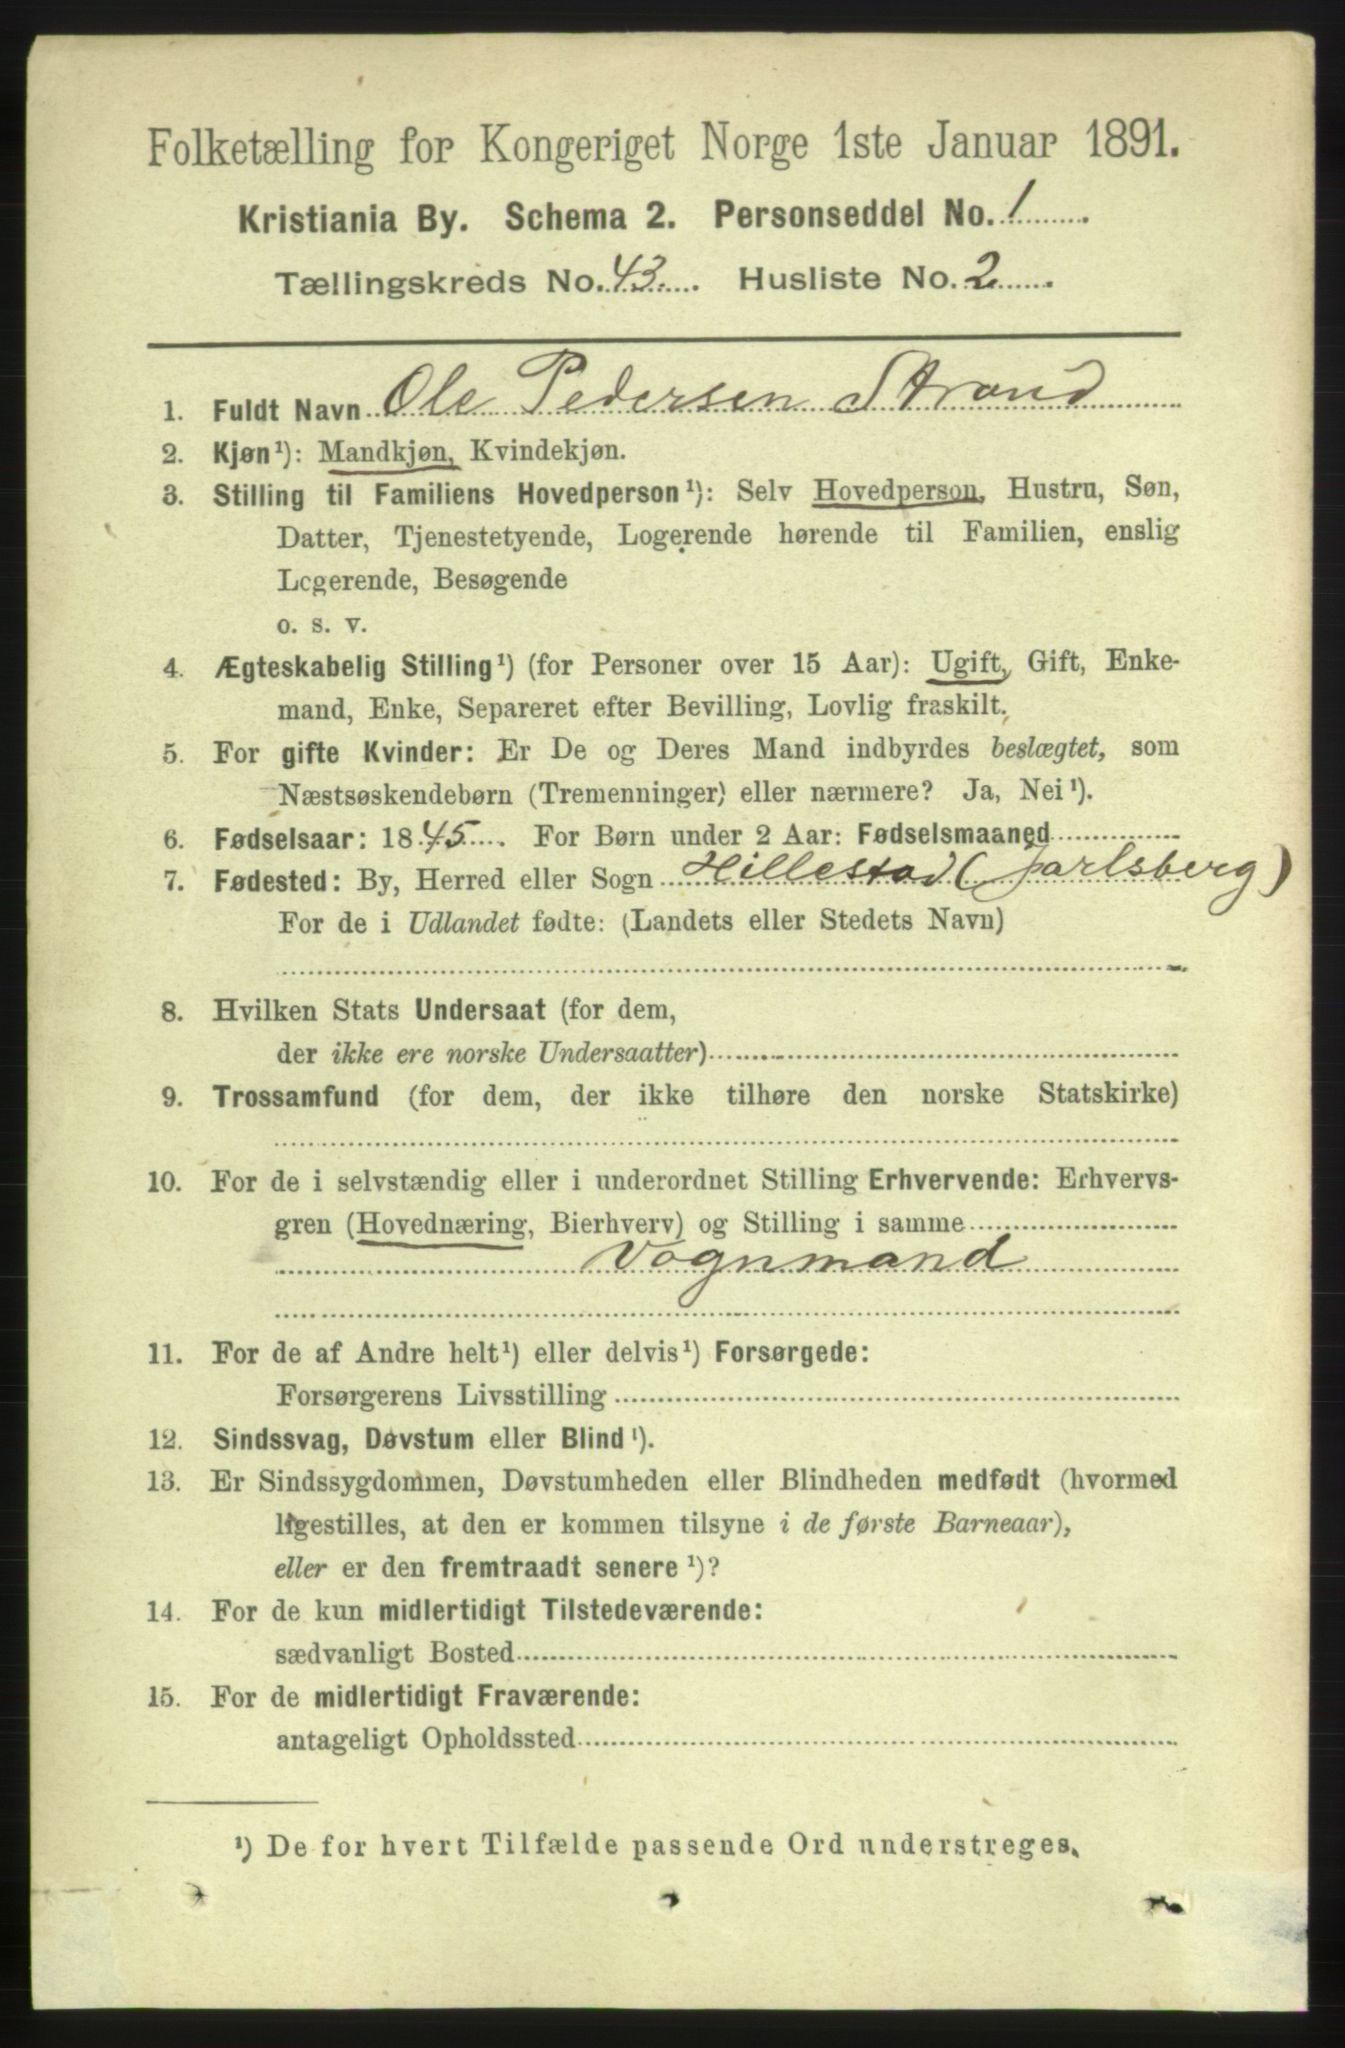 Folketælling for Kongeriget Norge 1ste Januar 1891.
Kristiania By. Schema 2. Personseddel No. 1
Tællingskreds No. 43. Husliste No. 2
1. Fuldt Navn Ole Pedersen Strand
2. Kjøn¹): Mandkjøn, Kvindekjøn.
3. Stilling til Familiens Hovedperson¹): Selv Hovedperson, Hustru, Søn,
Datter, Tjenestetyende, Logerende hørende til Familien, enslig
Logerende, Besøgende
o. s. v.
4. Ægteskabelig Stilling¹) (for Personer over 15 Aar): Ugift, Gift, Enke-
mand, Enke, Separeret efter Bevilling, Lovlig fraskilt.
5. For gifte Kvinder: Er De og Deres Mand indbyrdes beslægtet, som
Næstsøskendebørn (Tremenninger) eller nærmere? Ja, Nei¹).
6. Fødselsaar: 1845. For Børn under 2 Aar: Fødselsmaaned
7. Fødested: By, Herred eller Sogn Hillestad (Jarlsberg)
For de i Udlandet fødte: (Landets eller Stedets Navn)
8. Hvilken Stats Undersaat (for dem,
der ikke ere norske Undersaatter)
9. Trossamfund (for dem, der ikke tilhøre den norske Statskirke)
10. For de i selvstændig eller i underordnet Stilling Erhvervende: Erhvervs-
gren (Hovednæring, Bierhverv) og Stilling i samme
Vognmand
11. For de af Andre helt¹) eller delvis¹) Forsørgede:
Forsørgerens Livsstilling
12. Sindssvag, Døvstum eller Blind¹).
13. Er Sindssygdommen, Døvstumheden eller Blindheden medfødt (hvormed
ligestilles, at den er kommen tilsyne i de første Barneaar),
eller er den fremtraadt senere¹)?
14. For de kun midlertidigt Tilstedeværende:
sædvanligt Bosted
15. For de midlertidigt Fraværende:
antageligt Opholdssted
¹) De for hvert Tilfælde passende Ord understreges.